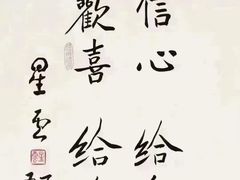 信心 給
歡喜 給
星雲